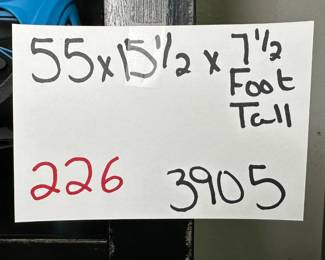 55x15 1/2 x 7 1/2
Foot
Tall
226 3905